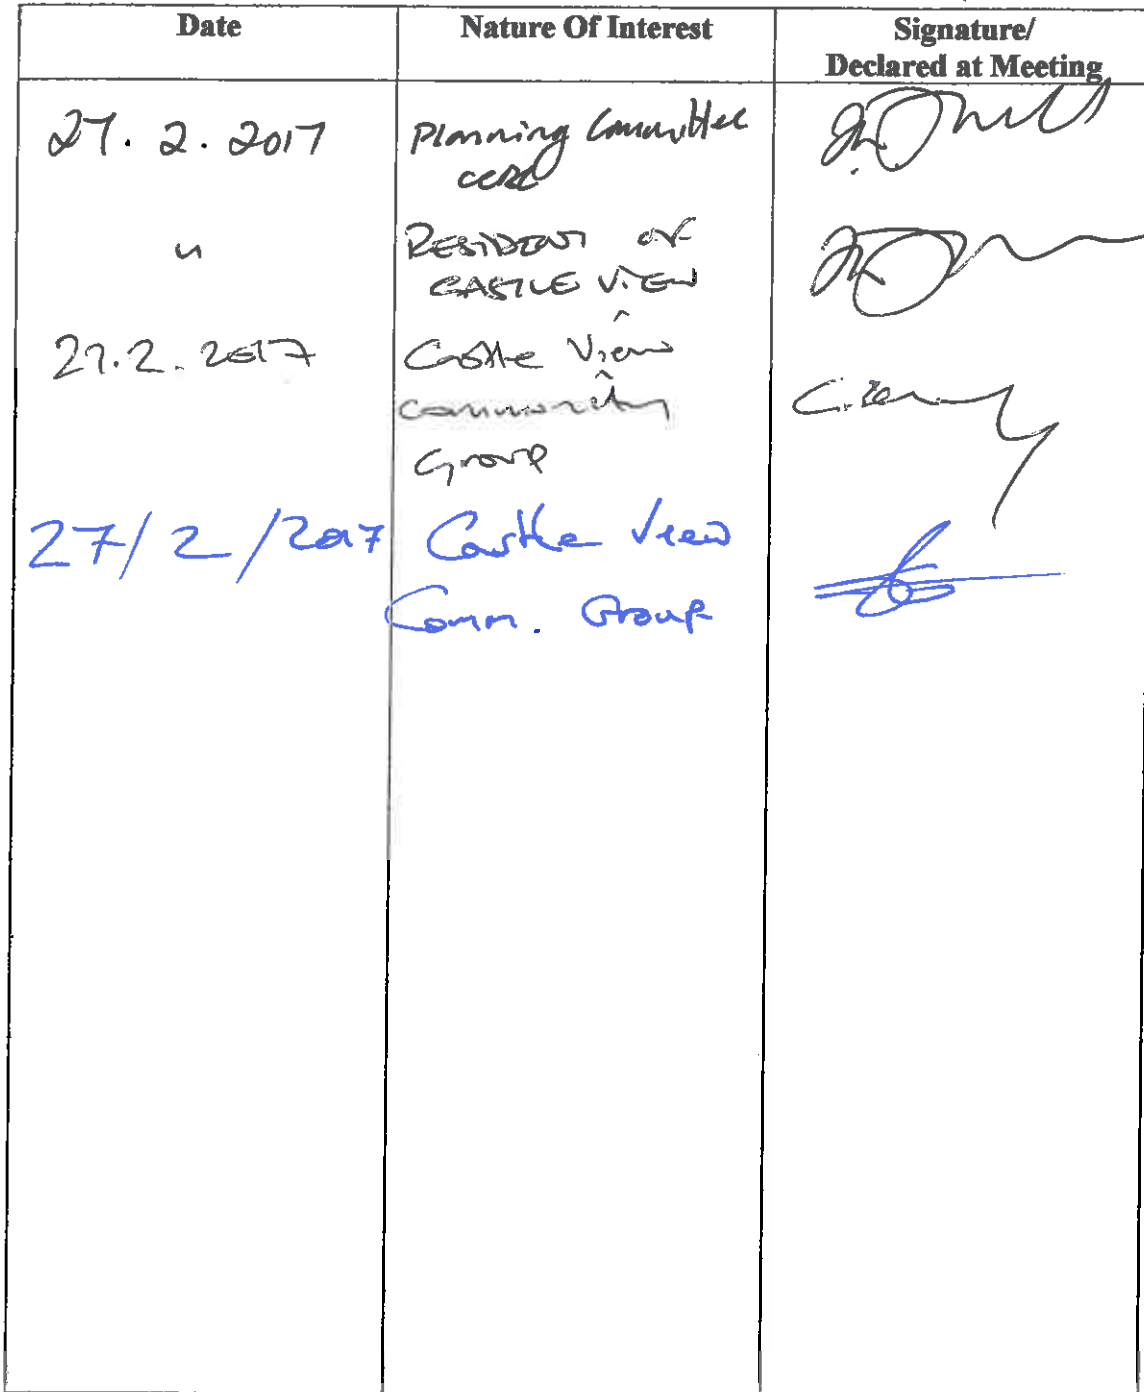 Date Nature Of Interest Signature/
Declared at Meeting
27. 2. 2017 Planning Committee
CCBC
" RESIDENT OF
CASTLE VIEW
27.2.2017 Castle View
Community
Group
27/2/2017 Castle View
Comm. Group